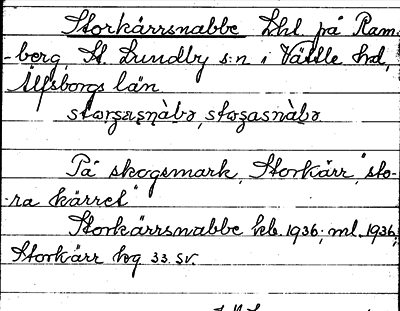 Storkärrsnabbe Lhl. på Ram-
-berg, St. Lundby s:n i Vättle hd,
Älfsborgs län.
På skogsmark, Storkärr, "sto-
-ra kärret"
Storkärrsnabbe kb. 1936; ml. 1936;
Storkärr hg 33. SV.